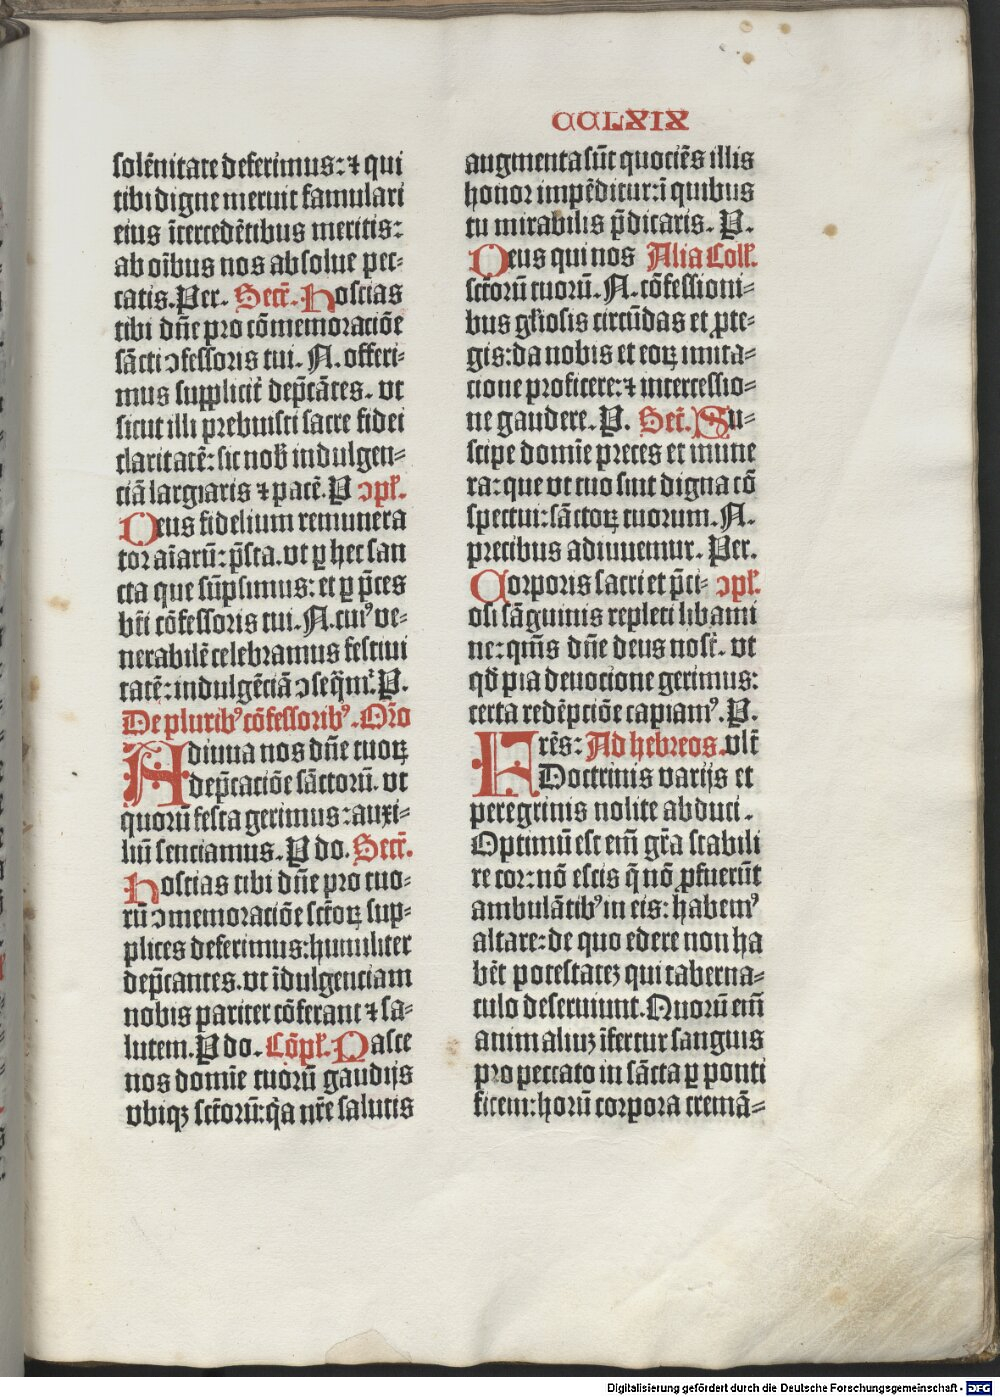 CCLXIX
solēnitate deferimus: ⁊ qui
tibi digne meruit famulari
eius ītercedētibus meritis:
ab oībus nos absolue pec-
catis. Per. Secr̄. Hostias
tibi dn̄e pro cōmemoraciōe
sācti ↄfessoris tui. N. offeri-
mus supplicit̄ dep̄cātes. vt
sicut illi prebuisti sacre fidei
claritatē: sic nob̄ indulgen-
ciā largiaris ⁊ pacē. P ↄpl̄.
Deus fidelium remunera
tor aīarū: p̄sta. vt ꝑ hec san
cta que sūpsimus: et ꝑ p̄ces
bēi cōfessoris tui. N. cuiꝰ ve-
nerabilē celebramus festiui
tatē: indulgēciā ↄseq̄mꝛ. P.
De pluribꝰ cōfessoribꝰ. Or̄o
Adiuua nos dn̄e tuoꝝ
dep̄caciōe sāctorū. vt
quorū festa gerimus: auxi-
liū senciamus. P do. Secr̄.
Hostias tibi dn̄e pro tuo-
rū ↄmemoraciōe sctōꝝ sup-
plices deferimus: humiliter
dep̄cantes. vt īdulgenciam
nobis pariter cōferant ⁊ sa-
lutem. P do. Cōpl̄. Pasce
nos domīe tuorū gaudijs
vbiqꝫ sctōrū: q̄a nr̄e salutis
augmenta sūt quociēs illis
honor impēditur: ī quibus
tu mirabilis p̄dicaris. P.
Deus qui nos Alia Coll̄.
sctōrū tuorū. N. cōfessioni-
bus gl̄iosis circūdas et ꝓte-
gis: da nobis et eoꝝ imita-
cione proficere: ⁊ intercessio-
ne gaudere. P. Secr̄. Su-
scipe domīe preces et mune
ra: que vt tuo sint digna cō
spectui: sāctoꝝ tuorum. N.
precibus adiuuemur. Per.
Corporis sacri et p̄ci- ↄpl̄.
osi sāguinis repleti libami
ne: qm̄s dn̄e deus nosr̄. vt
qd̄ pia deuocione gerimus:
certa redēpciōe capiamꝰ. P.
Frēs: Ad hebreos. vlt̄
Doctrinis varijs et
peregrinis nolite abduci.
Optimū est em̄ gr̄a stabili
re cor: nō escis q̄ nō ꝓfuerūt
ambulātibꝰ in eis: habemꝰ
altare: de quo edere non ha
bēt potestateꝫ qui taberna-
culo deseruiunt. Quorū em̄
animaliuꝫ īfertur sanguis
pro peccato in sācta ꝑ ponti
ficem: horū corpora cremā-
Digitalisierung gefördert durch die Deutsche Forschungsgemeinschaft - DFG